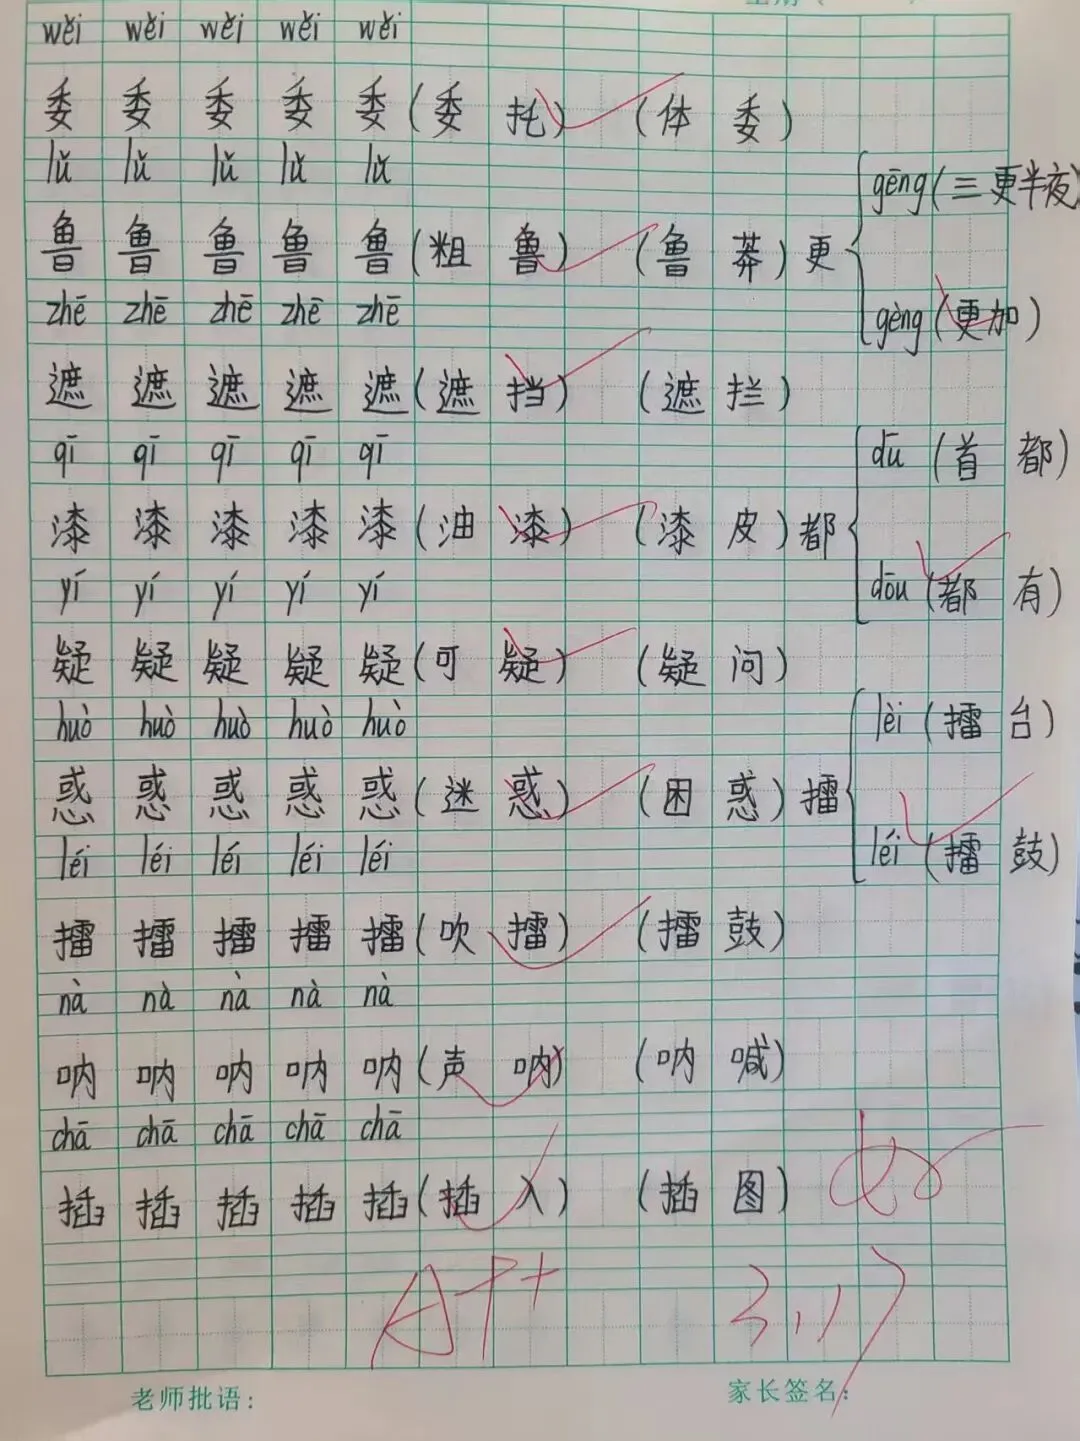 wěi wěi wěi wěi wěi
委 委 委 委 委 (委 托) (体 委)
lǔ lǔ lǔ lǔ lǔ
gēng (三更半夜)
鲁 鲁 鲁 鲁 鲁 (粗 鲁) (鲁 莽) 更
zhē zhē zhē zhē zhē
gèng (更加)
遮 遮 遮 遮 遮 (遮 挡) (遮 拦)
qī qī qī qī qī
dū (首 都)
漆 漆 漆 漆 漆 (油 漆) (漆 皮) 都
yí yí yí yí yí
dōu (都 有)
疑 疑 疑 疑 疑 (可 疑) (疑 问)
huò huò huò huò huò
lèi (擂 台)
惑 惑 惑 惑 惑 (迷 惑) (困 惑) 擂
léi léi léi léi léi
léi (擂 鼓)
擂 擂 擂 擂 擂 (吹 擂) (擂 鼓)
nà nà nà nà nà
呐 呐 呐 呐 呐 (声 呐) (呐 喊)
chā chā chā chā chā
插 插 插 插 插 (插 入) (插 图)
A++ 3.17
老师批语: 家长签名: